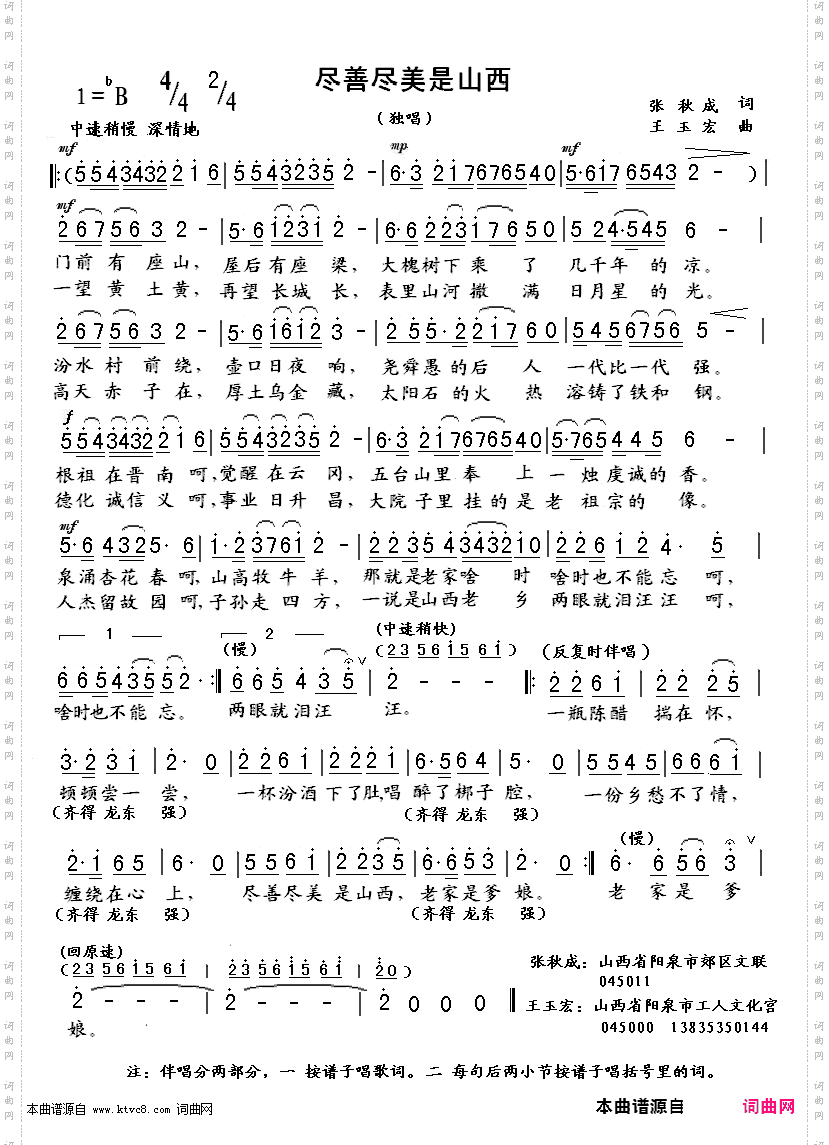 尽善尽美是山西
1=♭B 4/4 2/4
（独唱）
张秋成 词
王玉宏 曲
中速稍慢 深情地
mf mp mf
‖:(5 5 4 3 4 3 2 2 1 6 | 5 5 4 3 2 3 5 2 - | 6· 3 2 1 7 6 7 6 5 4 0 | 5· 6 1 7 6 5 4 3 2 - ) |
mf
2 6 7 5 6 3 2 - | 5· 6 1 2 3 1 2 - | 6· 6 2 2 3 1 7 6 5 0 | 5 2 4· 5 4 5 6 - |
门前有座山， 屋后有座 梁， 大槐树下乘 了 几千年 的 凉。
一望黄土黄， 再望长城 长， 表里山河撒 满 日月星 的 光。
2 6 7 5 6 3 2 - | 5· 6 1 6 1 2 3 - | 2 5 5· 2 2 1 7 6 0 | 5 4 5 6 7 5 6 5 - |
汾水村前绕， 壶口日夜 响， 尧舜愚的后 人 一代比一代 强。
高天赤子在， 厚土乌金 藏， 太阳石的火 热 溶铸了铁和 钢。
f
5 5 4 3 4 3 2 2 1 6 | 5 5 4 3 2 3 5 2 - | 6· 3 2 1 7 6 7 6 5 4 0 | 5· 7 6 5 4 4 5 - |
根祖在晋南呵，觉醒在云 冈， 五台山里奉 上一烛虔诚的香。
德化诚信义呵，事业日升 昌， 大院子里挂的是老祖宗的 像。
mf
5· 6 4 3 2 5· 6 | 1· 2 3 7 6 1 2 - | 2 2 3 5 4 3 4 3 2 1 0 | 6 6 1 2 4· 5 |
泉涌杏花春呵，山高牧牛羊， 那就是老家啥 时 啥时也不能忘 呵，
人杰留故园呵，子孙走四方， 一说是山西老 乡 两眼就泪汪汪 呵，
1 2 （慢） （中速稍快）
(2 3 5 6 1 5 6 1) （反复时伴唱）
6 6 5 4 3 5 5 2· :‖ 6 6 5 4 3 5 | 2 - - - ‖: 2 2 6 1 | 2 2 2 5 |
啥时也不能 忘。 两眼就泪汪 汪。 一瓶陈醋 揣在怀，
3· 2 3 1 | 2· 0 | 2 2 6 1 | 2 2 3 5 | 6· 5 6 4 | 5· 0 | 5 5 4 5 | 6 6 6 1 |
顿顿尝一 尝， 一杯汾酒下了肚，唱 醉了梆子 腔， 一份乡愁不了情，
（齐得 龙东 强） （齐得 龙东 强）
（慢）
2· 1 6 5 | 6· 0 | 5 5 6 1 | 2 2 3 5 | 6· 6 5 3 | 2· 0 :‖ 6· 6 5 6 3 |
缠绕在心 上， 尽善尽美是山西， 老家是爹 娘。 老 家 是 爹
（齐得 龙东 强） （齐得 龙东 强）
（回原速）
(2 3 5 6 1 5 6 1 2 3 5 | 2 3 5 6 1 5 6 1 2 3 5 | 2 0)
2 - - - | 2 - - - | 2 0 0 0 ‖
娘。
张秋成：山西省阳泉市郊区文联
045011
王玉宏：山西省阳泉市工人文化宫
045000 13835350144
注：伴唱分两部分，一 按谱子唱歌词。二 每句后两小节按谱子唱括号里的词。
本曲谱源自 www.ktvc8.com 词曲网
本曲谱源自 词曲网